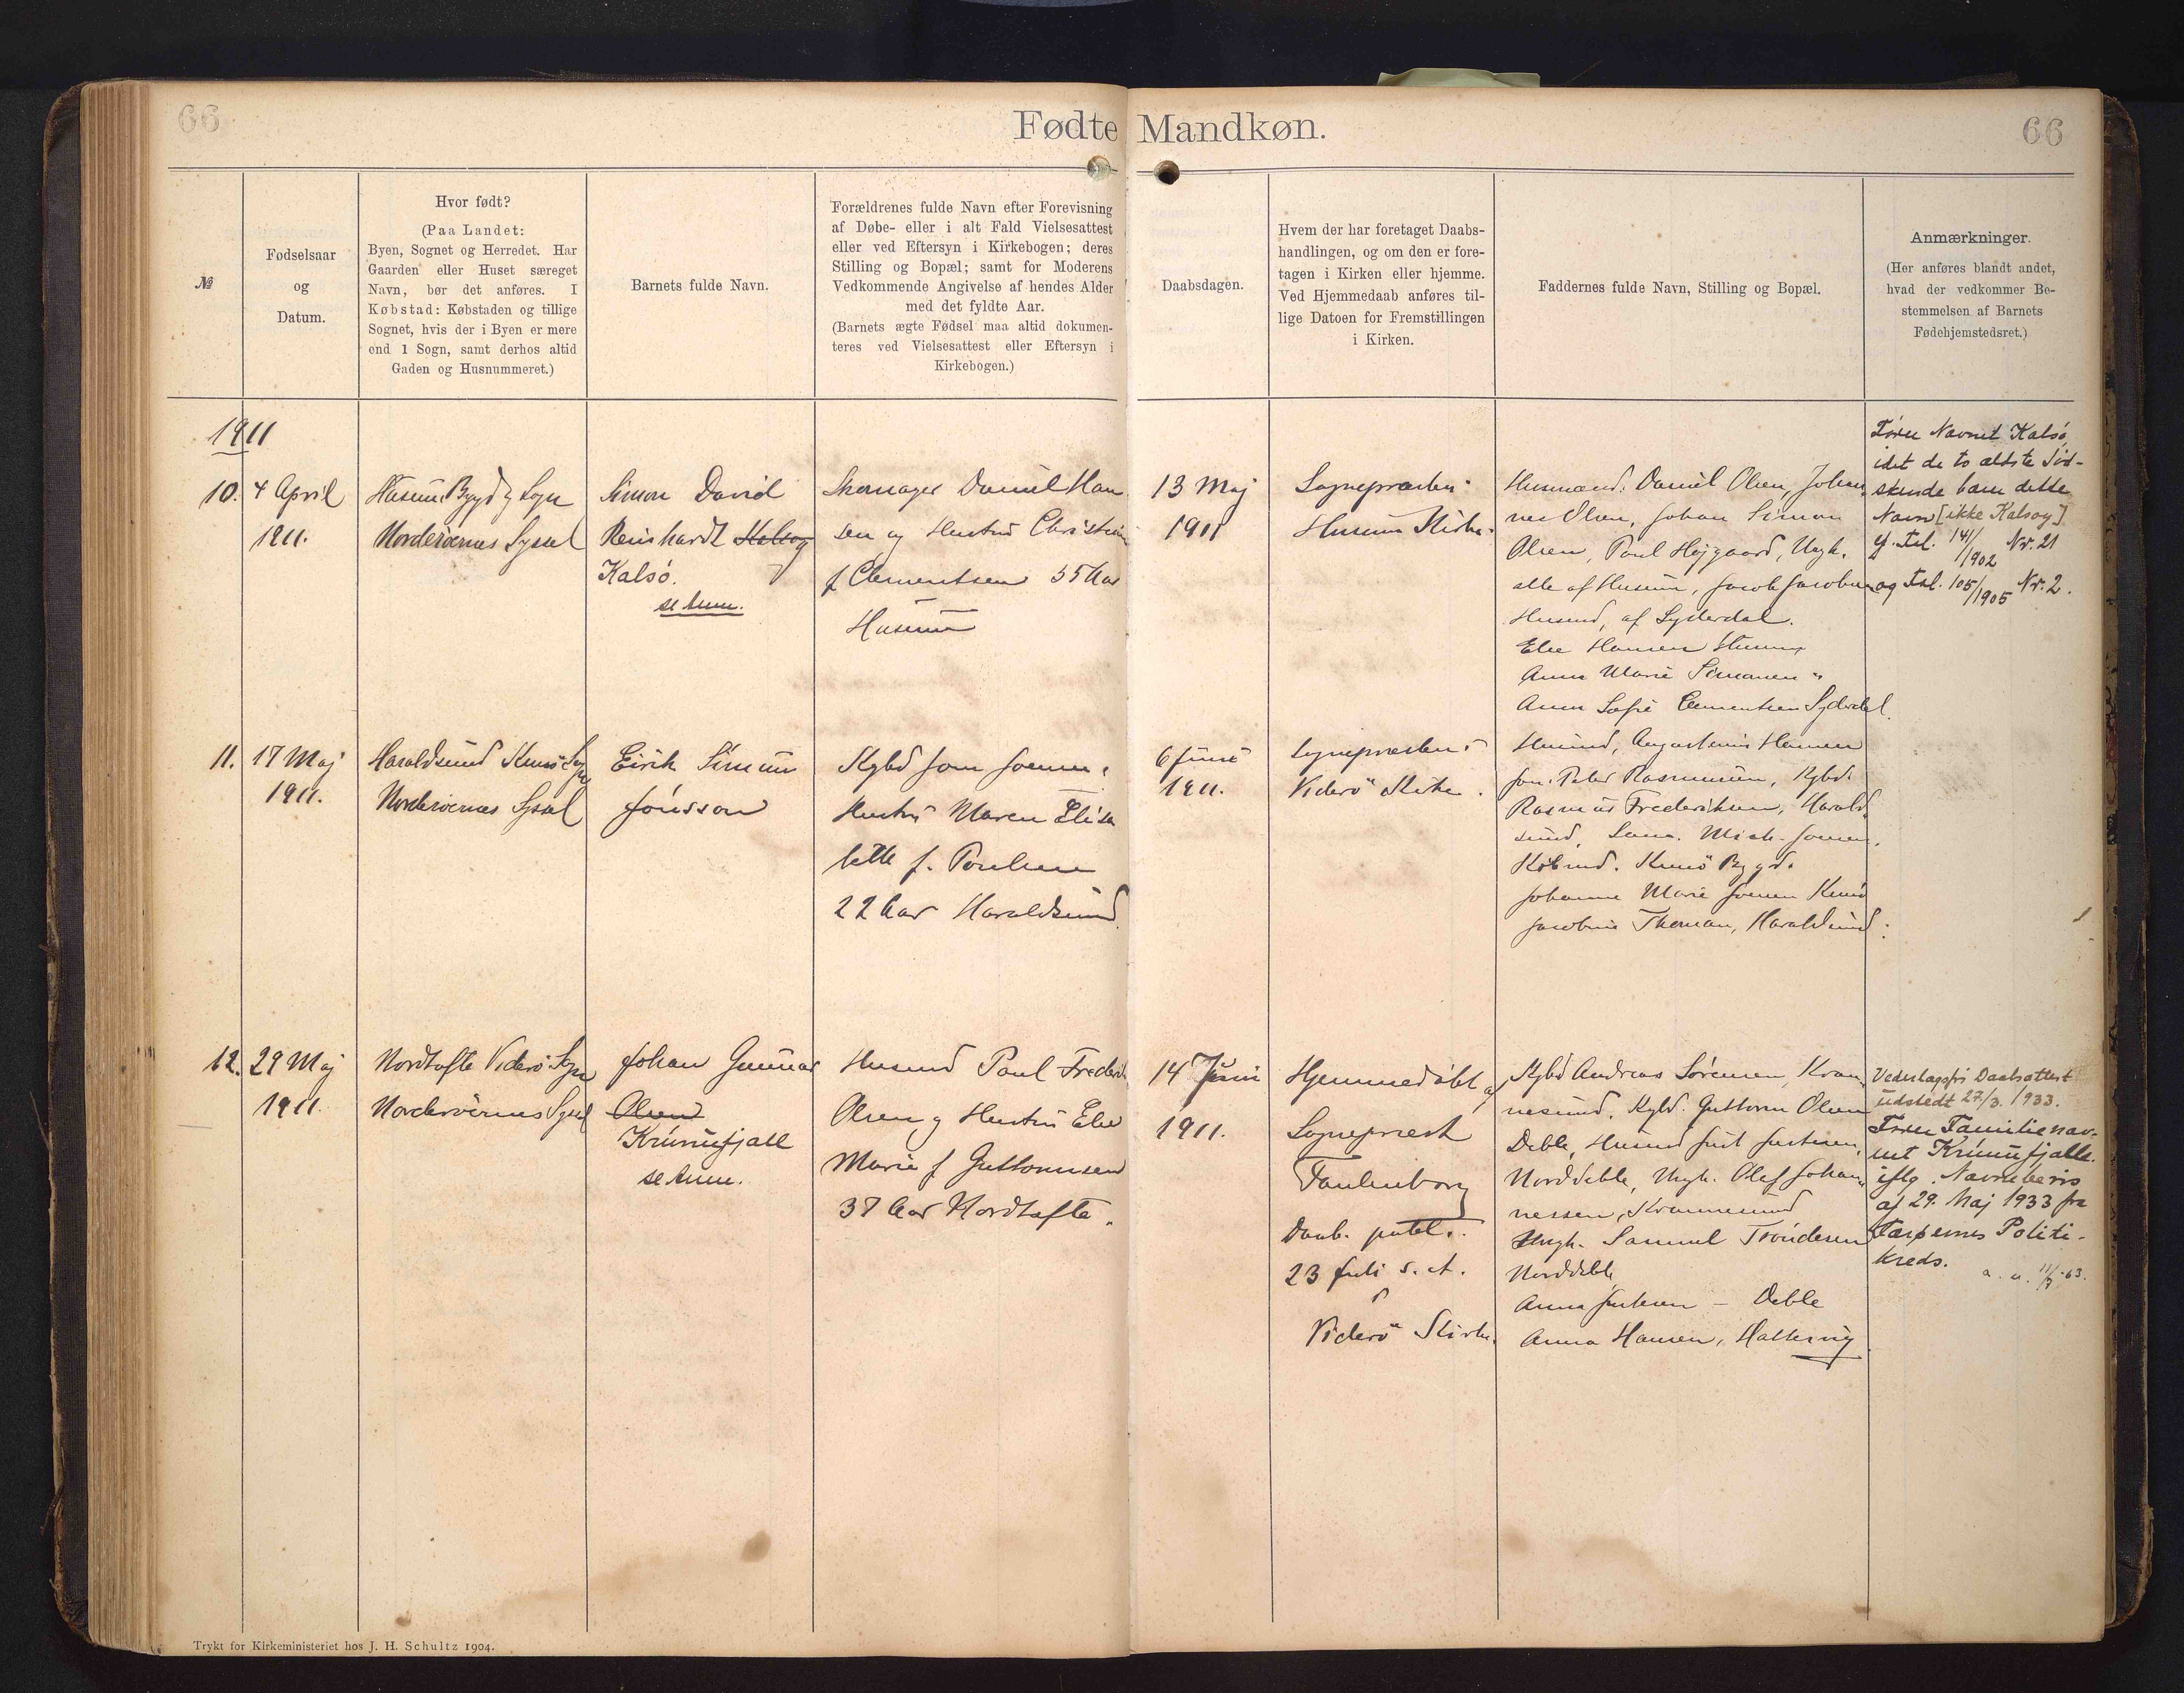 66
Fødte Mandkøn.
66
№
Fødselsaar
og
Datum.
Hvor født?
(Paa Landet:
Byen, Sognet og Herredet. Har
Gaarden eller Huset særeget
Navn, bør det anføres. I
Købstad: Købstaden og tillige
Sognet, hvis der i Byen er mere
end 1 Sogn, samt derhos altid
Gaden og Husnummeret.)
Barnets fulde Navn.
Forældrenes fulde Navn efter Forevisning
af Døbe- eller i alt Fald Vielsesattest
eller ved Eftersyn i Kirkebogen; deres
Stilling og Bopæl; samt for Moderens
Vedkommende Angivelse af hendes Alder
med det fyldte Aar.
(Barnets ægte Fødsel maa altid dokumen-
teres ved Vielsesattest eller Eftersyn i
Kirkebogen.)
Daabsdagen.
Hvem der har foretaget Daabs-
handlingen, og om den er fore-
tagen i Kirken eller hjemme.
Ved Hjemmedaab anføres til-
lige Datoen for Fremstillingen
i Kirken.
Faddernes fulde Navn, Stilling og Bopæl.
Anmærkninger.
(Her anføres blandt andet,
hvad der vedkommer Be-
stemmelsen af Barnets
Fødehjemstedsret.)
1911
10.
4 April
1911.
Husum Bygd og Sogn
Norderøernes Syssel
Simon David
Reinhardt Kalsoy
Kalsø.
se Anm.
Skomager Daniel Han
sen og Hustru Christine
f Clementsen 35 Aar
Husum
13 Maj
1911
Sognepræsten i
Husum Kirke.
Husmænd: Daniel Olsen, Johan
nes Olsen, Johan Simon
Olsen, Poul Højgaard, Ungk.
alle af Husum, Jacob Jacobsen
Husmd, af Syderdal.
Else Hansen Husum
Anna Marie Simonsen "
Anna Sofie Clementsen Syderdal.
Fører Navnet Kalsø,
idet de to ældste Sød-
skende bære dette
Navn [ikke Kalsoy]
cf. Fol. 14/1902 Nr. 21
og Fol. 105/1905 Nr. 2.
11.
17 Maj
1911.
Haraldsund Kunø Sogn
Norderøernes Syssel
Eirik Símun
Jónsson
Kgbd Joen Joensen
Hustru Maren Elisa
beth f. Poulsen
22 Aar Haraldsund.
6 Juni
1911.
Sognepræsten i
Viderø Kirke.
Husmd, Augustinus Hansen
Joen Peter Rasmussen, Kgbd.
Rasmus Frederiksen, Harald
sund, Sam. Mich. Joensen,
Købmd. Kunø Bygd.
Johanne Marie Joensen Kunø
Jacobine Thomsen, Haraldsund.
12.
29 Maj
1911
Nordtofte Viderø Sogn
Norderøernes Syssel
Johan Gunnar
Olsen
Krúnufjall
se Anm.
Husmd Poul Frederik
Olsen og Hustru Else
Marie f Guttormsen
37 Aar Nordtofte.
14 Juni
1911.
Hjemmedøbt af
Sognepræst
Faulenborg
Daab. publ.
23 Juli s. A.
i
Viderø Kirke.
Kgbd Andreas Sørensen, Kvan
nesund, Kgbd. Guttorm Olsen
Deble, Husmd Just Justesen,
Norddeble, Ungk. Olaf Johan
nessen, Kvannesund
Ungk. Samuel Tróndesen
Norddeble
Anna Justesen – Deble
Anna Hansen, Hattervig.
Vederlagsfri Daabsattest
udstedt 27/3. 1933.
Fører Familienav-
net Krúnufjall
iflg. Navnebevis
af 29. Maj 1933 fra
Færøernes Politi-
kreds.
a. u. 11/7-63.
Trykt for Kirkeministeriet hos J. H. Schultz 1904.